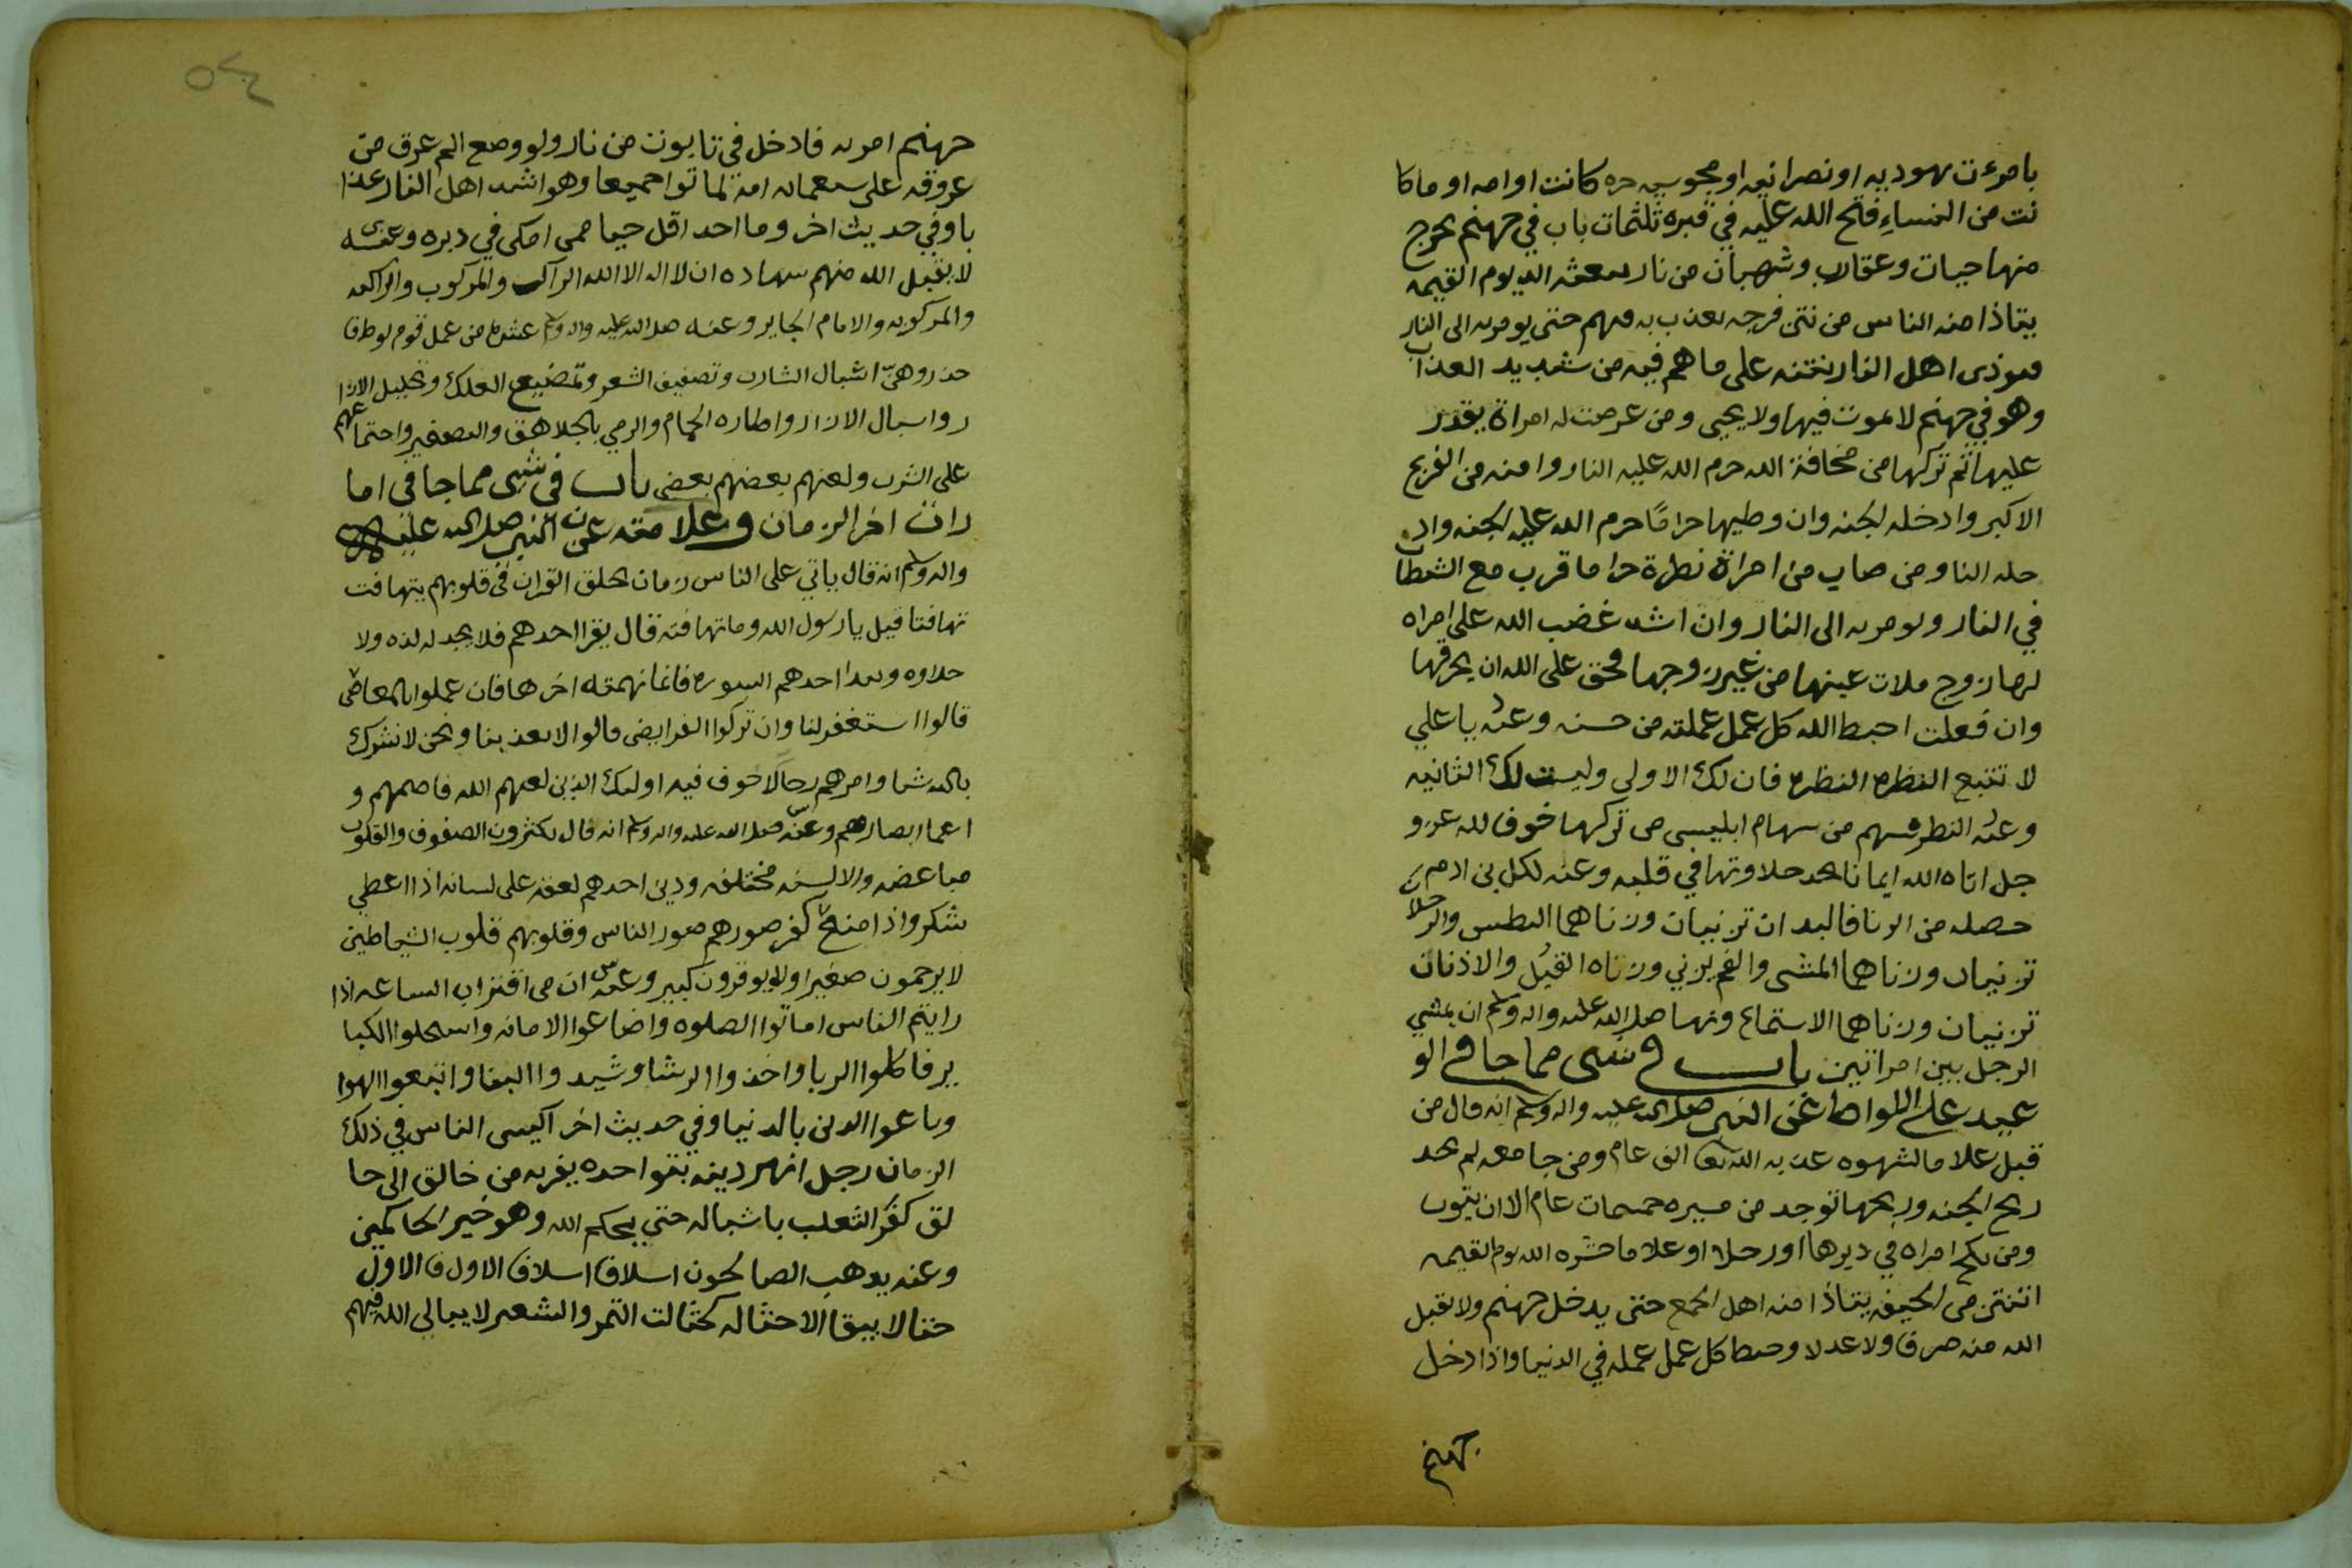 بامرءت يهوديه او نصرانيه او مجوسيه حره كانت او امه او ما كا
نت من النساءِ فتح الله عليه في قبره ثلثمات باب في جهنم يخرج
منها حيات وعقارب وشهبان من نار الي يوم القيمه
يتاذا منه الناس من نتن فرجه يعذب به حتى يومر به الى النار
اهل النار نتنه على ما هم فيه من شديد العذاب
وهو في جهنم لا يموت فيها ولا يحيى ومن عرضت له امراة يقدر
عليها ثم تركها من مخافة الله حرم الله عليه النار وامنه من الفزع
الاكبر وادخله الجنه وان وطيها حرامًا حرم الله عليه الجنه واد
خله النار ومن صاب من امراة نظرة حراما قرب مع الشطان
في النار ويومر به الى النار وان اشد غضب الله على امراه
لها زوج ملات عينها من غير زوجها فحق على الله ان يحرقها
وان فعلت احبط الله كل عمل عملته من حسنه وعنه يا علي
لا تتبع النظره النظره فان لك الاولى وليست لك الثانيه
وعنه النظر سهم من سهام ابليس من تركها خوف لله عز و
جل اتاه الله ايمانا يجد حلاوتها في قلبه وعنه لكل بني ادم
حصله من الزنا فاليد ان تزنيان وزناهما البطش والرجلان
تزنيان وزناهما المشي والفم يزني وزناه القبُل والاذنان
تزنيان وزناهما الاستماع ونها صلى الله عليه واله وسلم ان يمشي
الرجل بين امراتين باب في شى مما جا في الو
عيد على اللواط عن النبي صلى الله عليه واله وسلم انه قال من
قبل غلاما لشهوه عذبه الله الف عام ومن جامعه لم يجد
ريح الجنه وريحها توجد من مسيره خمسمات عام الا ان يتوب
ومن نكح امراه في دبرها او رجلا او غلاما حشره الله يوم القيمه
انتن من الجيفه يتاذا منه اهل الجمع حتى يدخل جهنم ولا يقبل
الله منه صرفا ولا عدلا وحبط كل عمل عمله في الدنيا واذا دخل
جهنم
٥٤
جهنم امر به فادخل في تابوت من نار ولو وضع عرق من
عروقه على امة لماتوا جميعا وهو اشد اهل النار عذا
با وفي حديث اخر وما احد اقل حيا ممن امكن في دبره وعنه
لا يقبل الله منهم شهاده ان لا اله الا الله الراكب والمركوب والراكبه
والمركوبه والامام الجاير وعنه صلى الله عليه واله وسلم عشره من عمل قوم لوط فا
حذروهنّ اسبال الشارب وتصفيف الشعر وتمضيع العلك وتحليل الازا
ر واسبال الازار واطاره الحمام والرمي بالجلاهق والصفير واجتماعهم
على الشرب ولعنهم بعضهم بعض باب في شى مما جا في اما
رات اخر الزمان وعلامته عن النبي صلى الله عليه
واله وسلم انه قال ياتي على الناس زمان يخلق القران في قلوبهم يتهافت
تهافتا قيل يا رسول الله وما تهافته قال يقرا احدهم فلا يجد له لذه ولا
حلاوه ويبدا احدهم السوره فانما نهمته اخرها فان عملوا بالمعاصي
قالوا استغفر لنا وان تركوا الفرايض قالوا لا يعذبنا ونحن لا نشرك
بالله شيا وامرهم رجالا خوف فيه اولئك الذين لعنهم الله فاصمهم و
اعما ابصارهم وعنه صلى الله عليه واله وسلم انه قال يكثرون الصفوف والقلوب
متباغضه والالسنه مختلفه ودين احدهم لعقه على لسانه اذا اعطي
شكر واذا منع كفر صورهم صور الناس وقلوبهم قلوب الشياطين
لا يرحمون صغيرا ولا يوقرون كبير وعنه ان من اقتراب الساعه اذا
رايتم الناس اماتوا الصلوه واضاعوا الامانه واستحلوا الكبا
ير فاكلوا الربا واخذوا الرشا وشيدوا البنا واتبعوا الهوا
وباعوا الدين بالدنيا وفي حديث اخر اكيس الناس في ذلك
الزمان رجل دينه يفر به من خالق الى حا
لق كفر الثعلب باشباله حتى يحكم الله وهو خير الحاكمين
وعنه يذهب الصالحون اسلافا اسلافا الاول فالاول
حتا لا يبقا الا حثاله كحثالت التمر والشعير لا يبالي الله فيهم